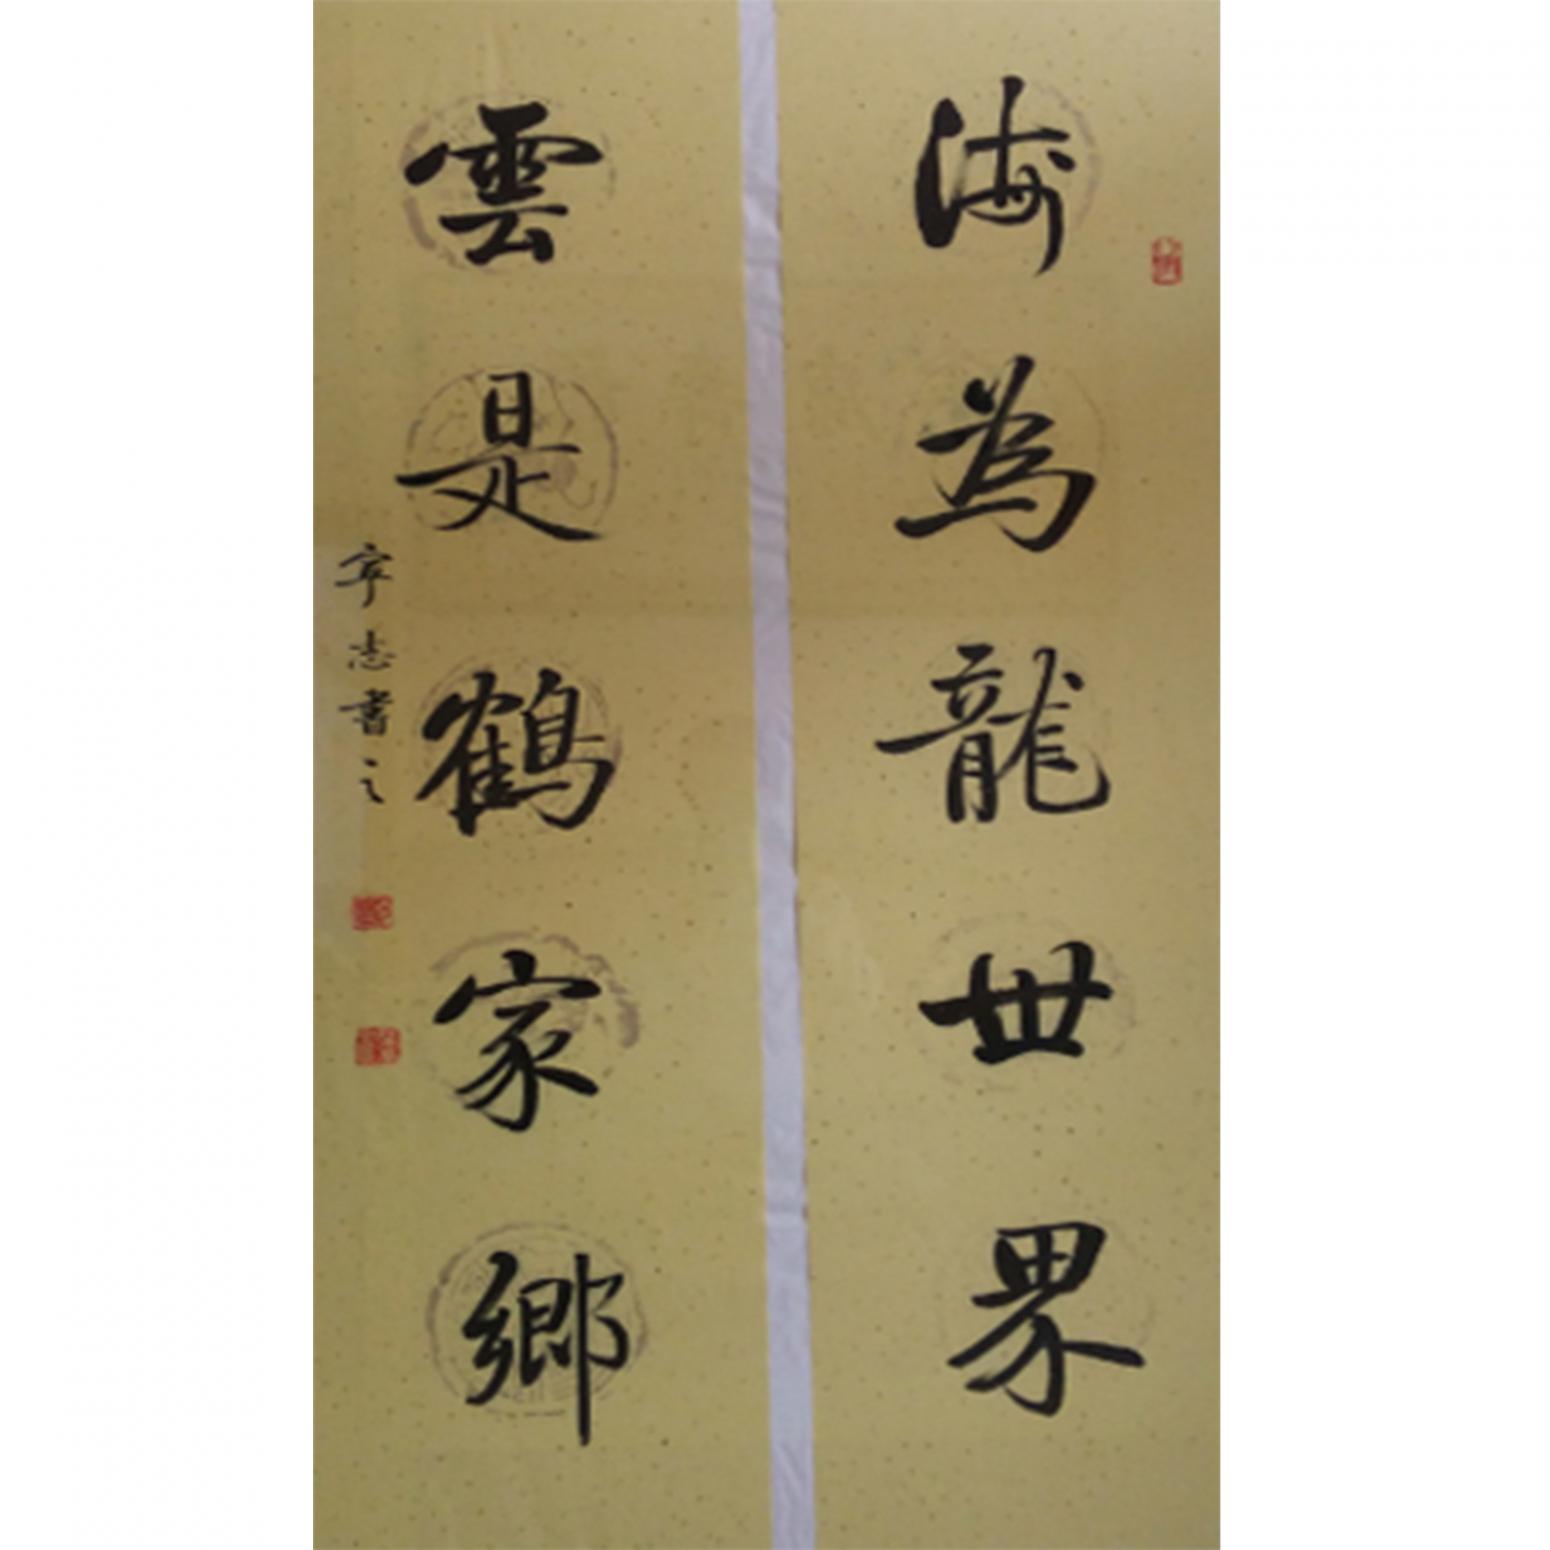 海為龍世界
雲是鶴家鄉
宇志書之